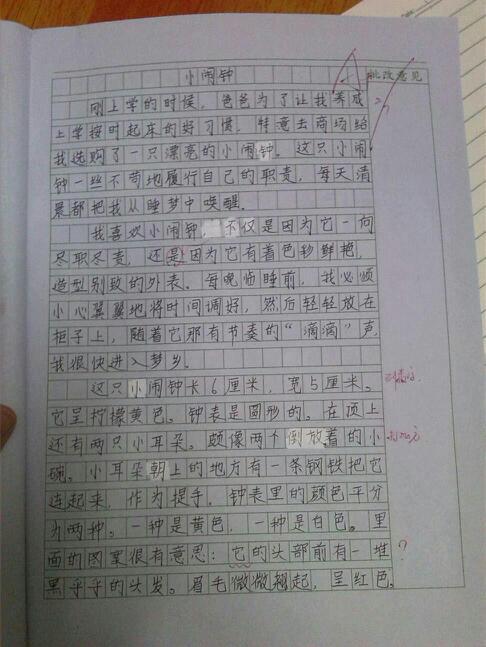 小闹钟
批改意见
刚上学的时候，爸爸为了让我养成
上学按时起床的好习惯，特意去商场给
我选购了一只漂亮的小闹钟。这只小闹
钟一丝不苟地履行自己的职责，每天清
晨都把我从睡梦中唤醒。
我喜欢小闹钟，不仅是因为它一向
尽职尽责，还是因为它有着色彩鲜艳，
造型别致的外表。每晚临睡前，我必须
小心翼翼地将时间调好，然后轻轻放在
柜子上，随着它那有节奏的“滴滴”声，
我很快进入梦乡。
这只小闹钟长6厘米，宽5厘米。
它呈柠檬黄色。钟表是圆形的。在顶上
还有两只小耳朵。颇像两个倒放着的小
碗。小耳朵朝上的地方有一条钢铁把它
连起来，作为提手。钟表里的颜色平分
为两种。一种是黄色，一种是白色。里
面的图案很有意思：它的头部前有一堆
？
黑乎乎的头发。眉毛微微翘起，呈红色。